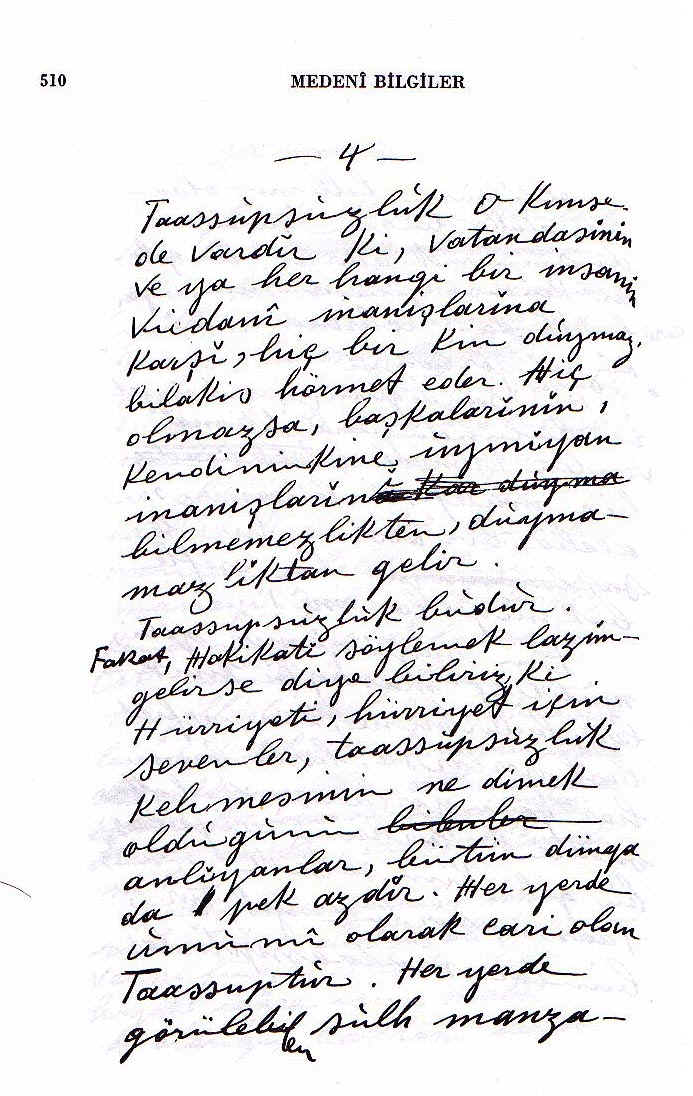 510
MEDENÎ BİLGİLER
— 4 —
Taassüpsüzlük o kimse-
de vardır ki, vatandaşinin
ve ya her hangi bir insanin
vicdanî inanişlarina
karşi, hiç bir kin duymaz,
bilâkis hörmet eder. Hiç
olmazsa, başkalarinin,
kendininkine uymiyan
inanişlarini
bilmemezlikten, duyma-
mazliktan gelir.
Taassupsuzluk budur.
Fakat, Hakikati söylemek lazim-
gelirse diye biliriz, ki
Hürriyeti, hürriyet için
sevenler, taassüpsüzlük
kelimesinin ne dimek
olduğunu bilenler
anliyanlar, bütün dünya
da pek azdir. Her yerde
umumî olarak cari olan
Taassuptur. Her yerde
görülebilen sulh manza-